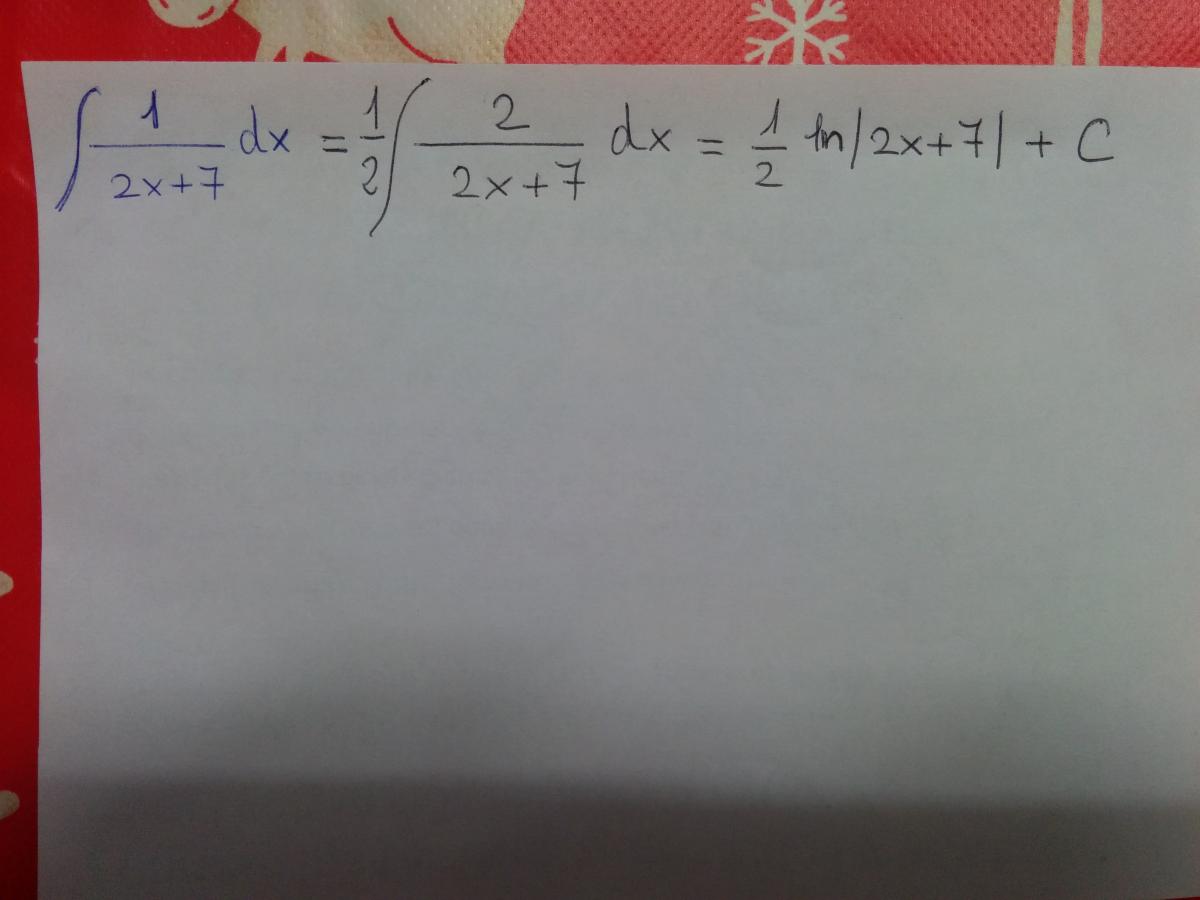 ∫ 1/(2x+7) dx = 1/2 ∫ 2/(2x+7) dx = 1/2 ln|2x+7| + C